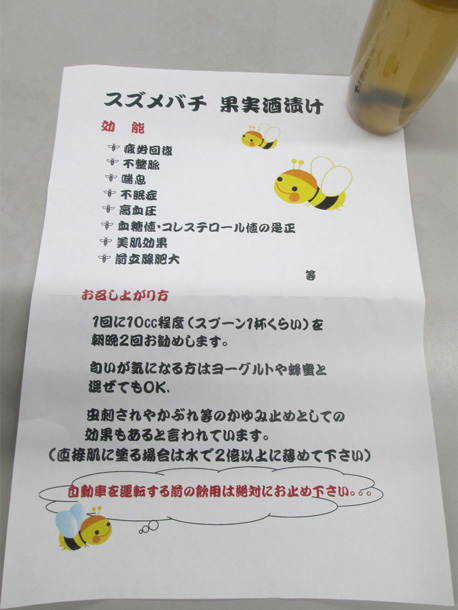 スズメバチ 果実酒漬け
効 能
疲労回復
不整脈
喘息
不眠症
高血圧
血糖値・コレステロール値の是正
美肌効果
前立腺肥大
等
お召し上がり方
1回に10cc程度(スプーン1杯くらい)を
朝晩2回お勧めします。
匂いが気になる方はヨーグルトや蜂蜜と
混ぜてもOK.
虫刺されやかぶれ等のかゆみ止めとしての
効果もあると言われています。
(直接肌に塗る場合は水で2倍以上に薄めて下さい)
自動車を運転する前の飲用は絶対にお止め下さい。。。